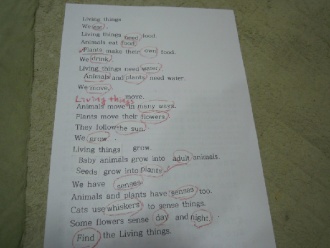 Living things
We eat.
Living things need food.
Animals eat food.
Plants make their own food.
We drink.
Living things need water.
Animals and plants need water.
We move.
Living things move.
Animals move in many ways.
Plants move their flowers.
They follow the sun.
We grow.
Living things grow.
Baby animals grow into adult animals.
Seeds grow into plants.
We have senses.
Animals and plants have senses too.
Cats use whiskers to sense things.
Some flowers sense day and night.
Find the Living things.